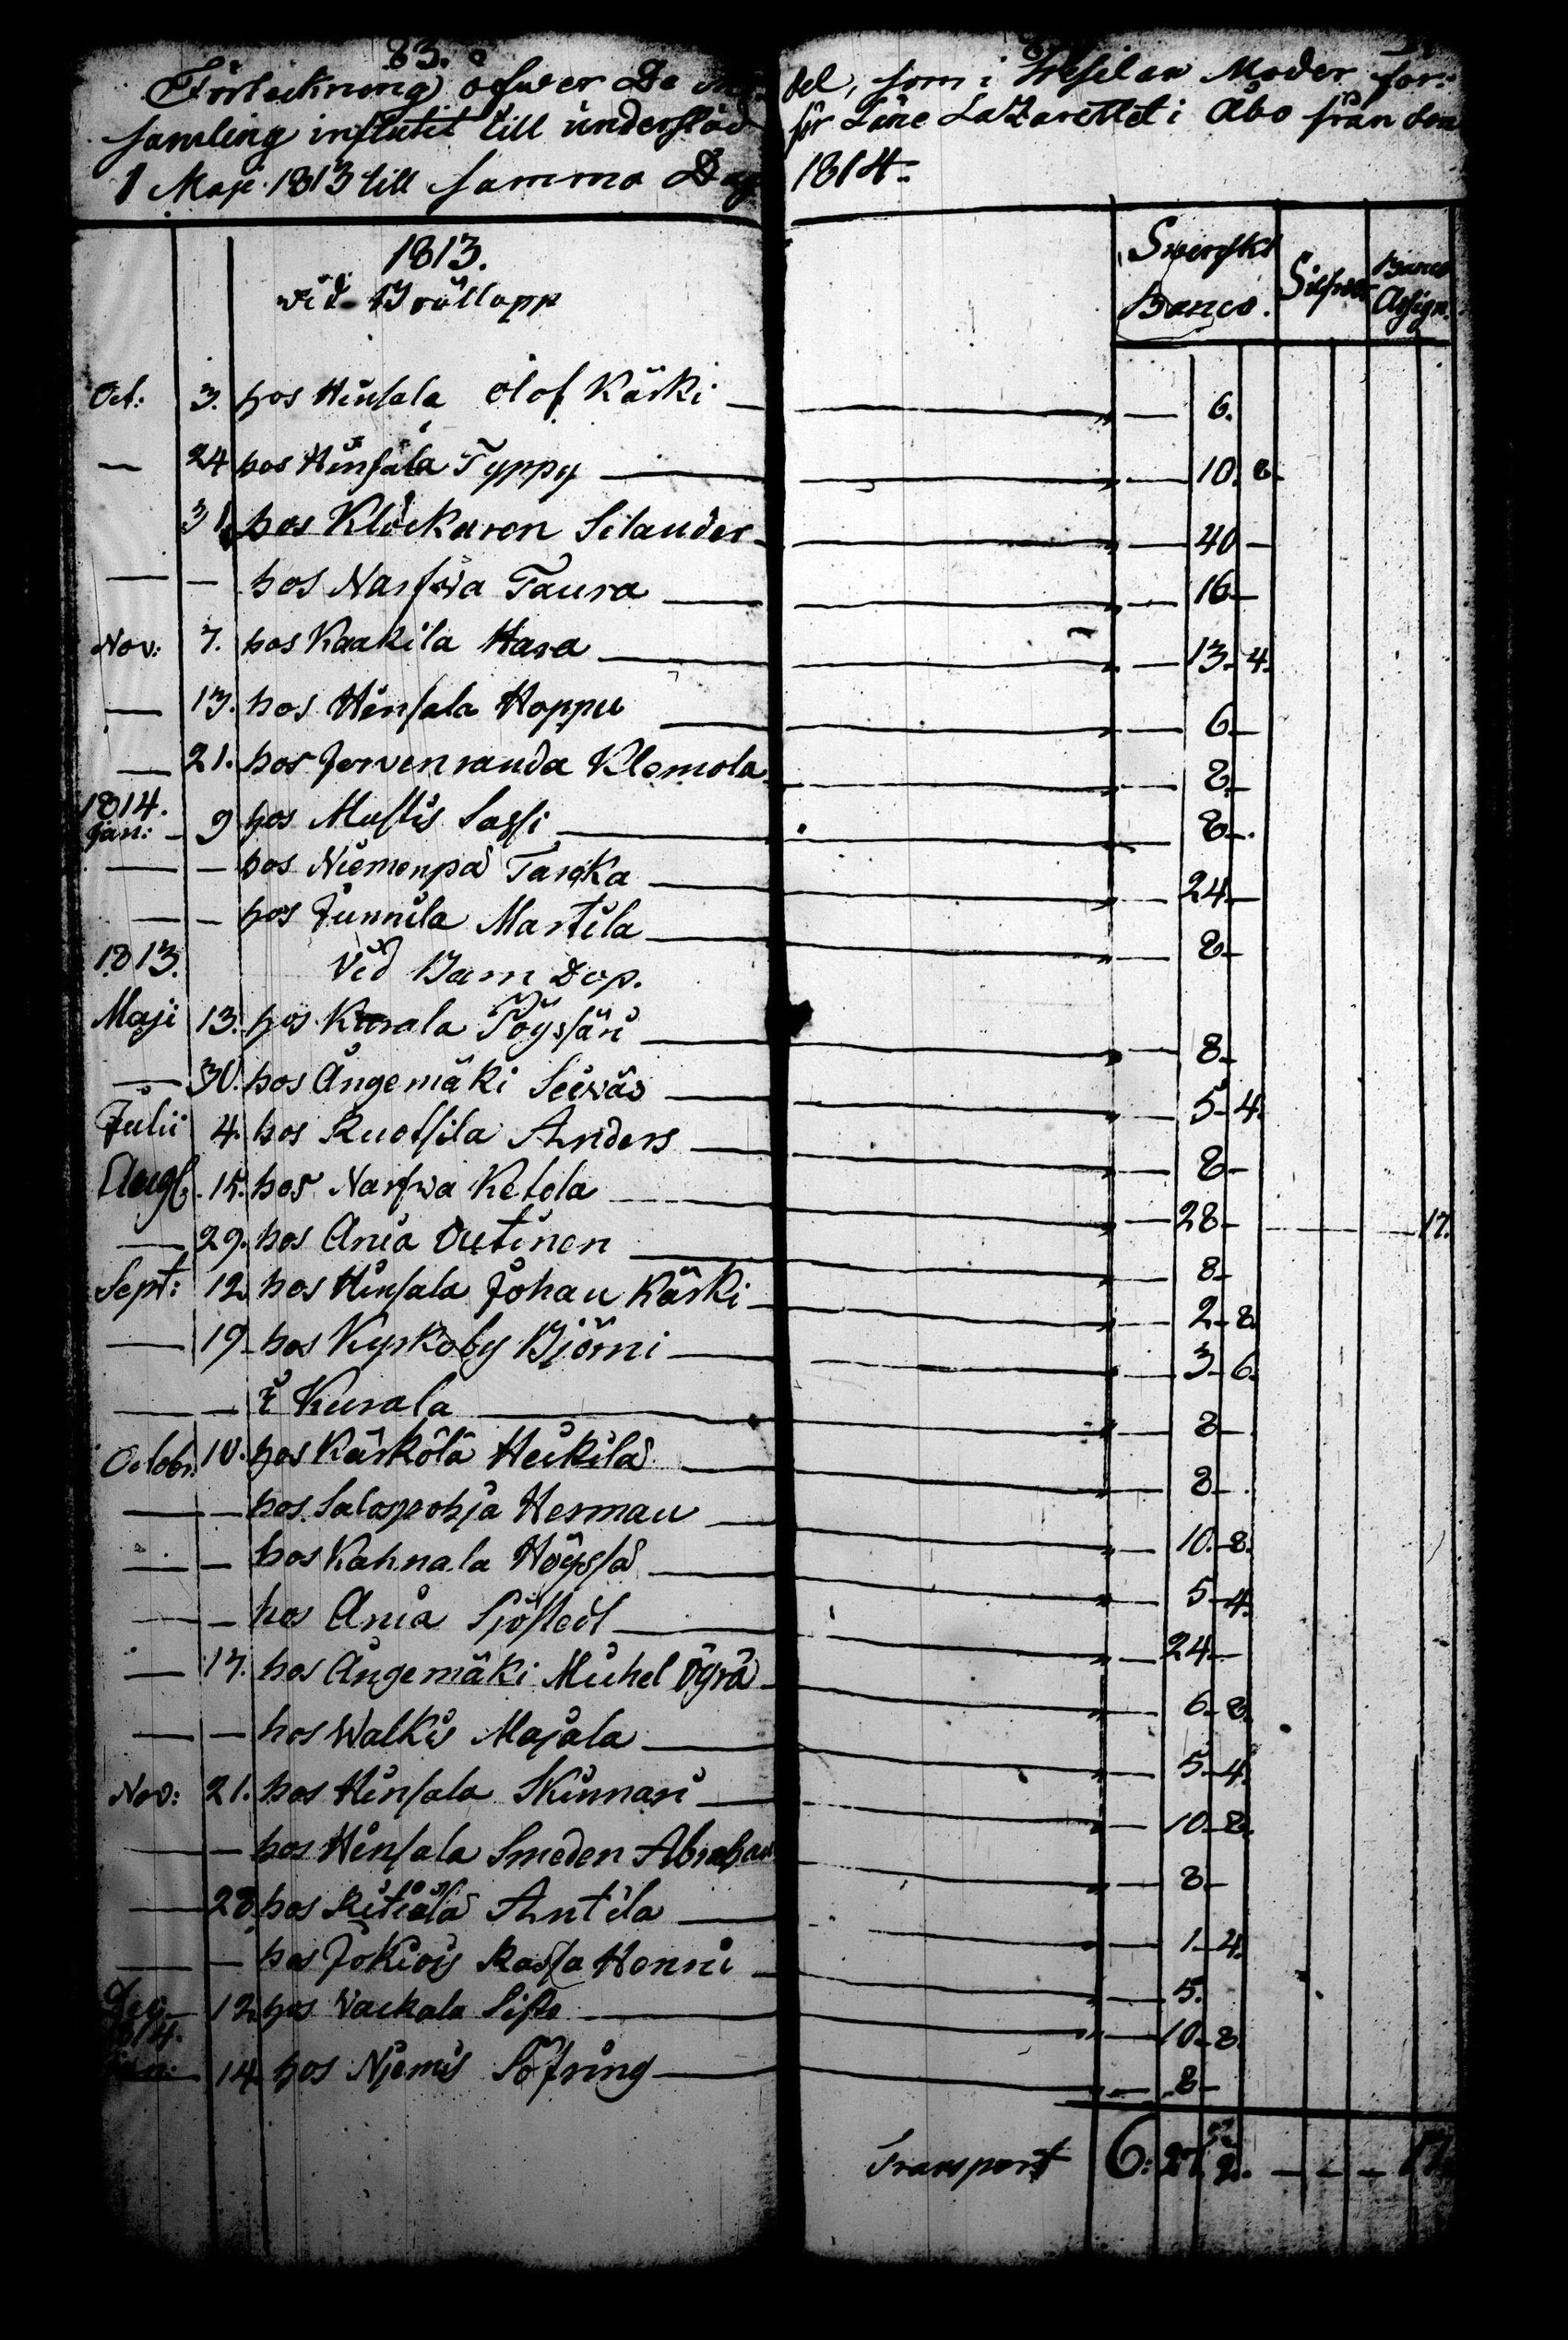 83.
Förteckning öfwer De del, som i Wesilax Moder för-
samling influtit till understöd för Läne Lazarettet i Åbo från den
1 Maji 1813 till samma Dag 1814.
1813. Swenskt Banco. Silfwer Banco Assign.
vid Bröllopp
Oct: 3. hos Hinsala Olof Kärki — 6.
— 24 hos Hinsala Typpy — 10. 8.
31. hos Klockaren Selander — 40 —
— — hos Narfwa Taura — 16 —
Nov: 7. hos Kaakila Hara — 13. 4.
— 13. hos Hinsala Hoppu — 6 —
— 21. hos Jervenranda Klemola — 8 —
1814.
Jan: 9 hos Mustis Sassi — 8 —
— — hos Niemenpä Tarcka — 24 —
— — hos Junnila Martila — 8 —
1813. Vid Barn Dop.
Maji 13. hos Kurala Töyssäri — 8 —
— 30. hos Ångemäki — 5 4.
Julii 4. hos Ruotsila Anders — 8 —
Aug. 15. hos Narfwa Ketola — 28 — 17.
— 29. hos Ania Outinen — 8 —
Sept: 12. hos Hinsala Johan Kärki — 2 8.
— 19. hos Kyrkoby Björni — 3 6.
— — i Kurala — 8 —
Octobr. 10. hos Kärkölä Heikilä — 8 —
— — hos Salospohja Herman — 10. 8.
— — hos Kahnala Höyssä — 5 4.
— — hos Ania Sjöstedt — 24 —
— 17. hos Ångemäki Michel Ögrä — 6 8.
— — hos Walkis Majala — 5 4.
Nov: 21. hos Hinsala Skinnari — 10 8.
— — hos Hinsala Smeden Abraham — 8 —
— 28. hos Ritiälä Antila — 1 4.
— — hos Jokiois Henni — 5.
Dec. 12. hos Vackala Sipo — 10 8.
1814.
Jan: 14. hos Njemis Söfring — 8 —
Transport 6: 27. 2. — — — 17.